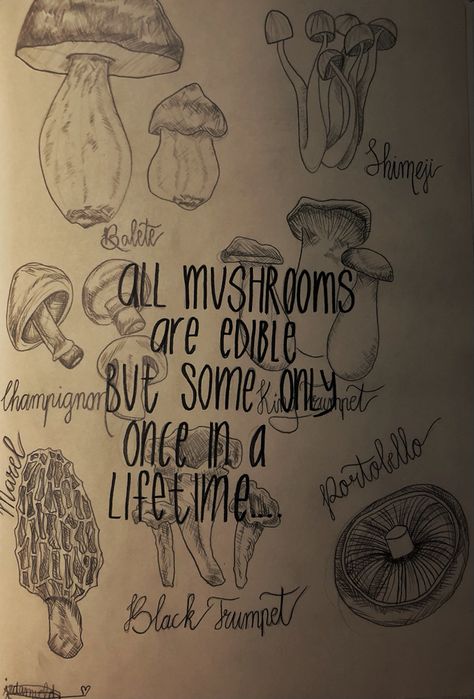 Shimeji
Balete
ALL MUSHROOMS
are EDIBLE
BUT SOME ONLY
ONCE IN A
LIFETIME....
Champignon
King Trumpet
Marel
Portobello
Black Trumpet